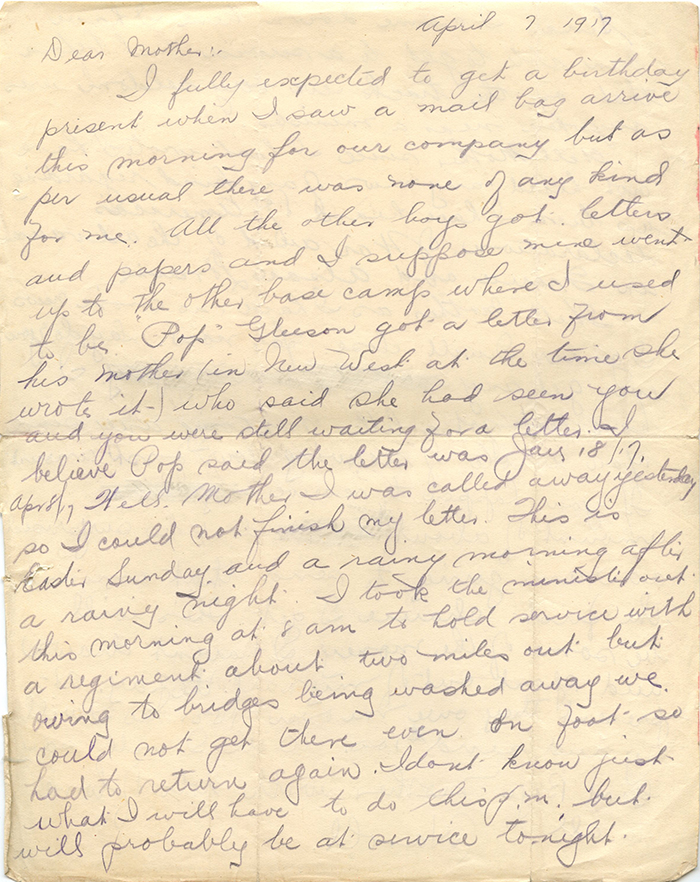 April 7 1917
Dear Mother:-
I fully expected to get a birthday
present when I saw a mail bag arrive
this morning for our company but as
per usual there was none of any kind
for me. All the other boys got letters
and papers and I suppose mine went
up to the other base camp where I used
to be. "Pop" Gleeson got a letter from
his mother (in New West. at the time she
wrote it) who said she had seen you
and you were still waiting for a letter. I
believe Pop said the letter was Jan 18/17.
Apr 8/17 Well Mother I was called away yesterday
so I could not finish my letter. This is
Easter Sunday and a rainy morning after
a rainy night. I took the minister out
this morning at 8 am to hold service with
a regiment about two miles out but
owing to bridges being washed away we
could not get there even on foot so
had to return again. I dont know just
what I will have to do this p.m. but
will probably be at service tonight.